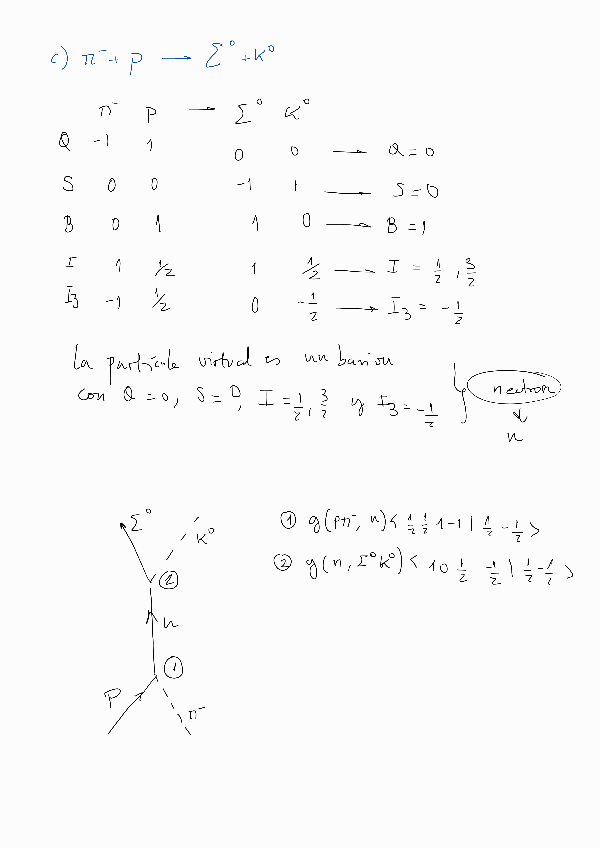 c) π⁻ + p → Σ⁰ + K⁰
π⁻ p → Σ⁰ K⁰
Q -1 1 0 0 → Q = 0
S 0 0 -1 1 → S = 0
B 0 1 1 0 → B = 1
I 1 1/2 1 1/2 → I = 1/2, 3/2
I3 -1 1/2 0 -1/2 → I3 = -1/2
La partícula virtual es un barion
con Q = 0, S = 0, I = 1/2, 3/2 y I3 = -1/2 } neutron
↓
n
Σ⁰ K⁰
②
n
①
p π⁻
① g(pπ⁻, n) < 1/2 1/2 1 -1 | 1/2 -1/2 >
② g(n, Σ⁰K⁰) < 1 0 1/2 -1/2 | 1/2 -1/2 >